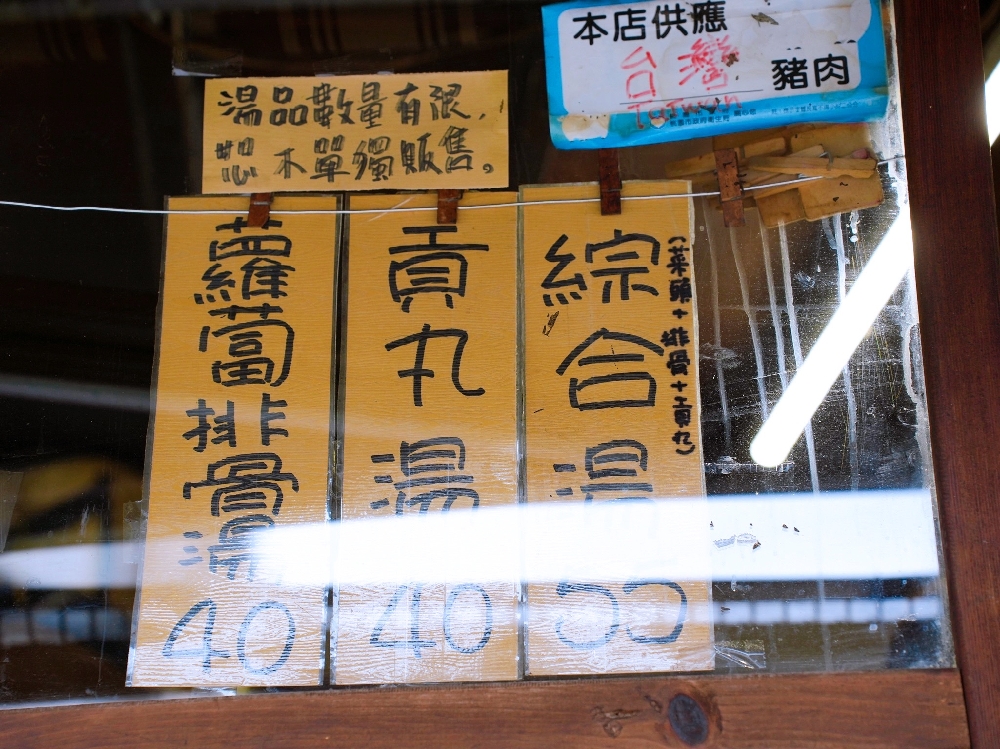 本店供應
台灣
豬肉
Taiwan
湯品數量有限,
恕不單獨販售。
蘿蔔排骨湯
40
貢丸湯
40
綜合湯
(菜頭+排骨+貢丸)
55